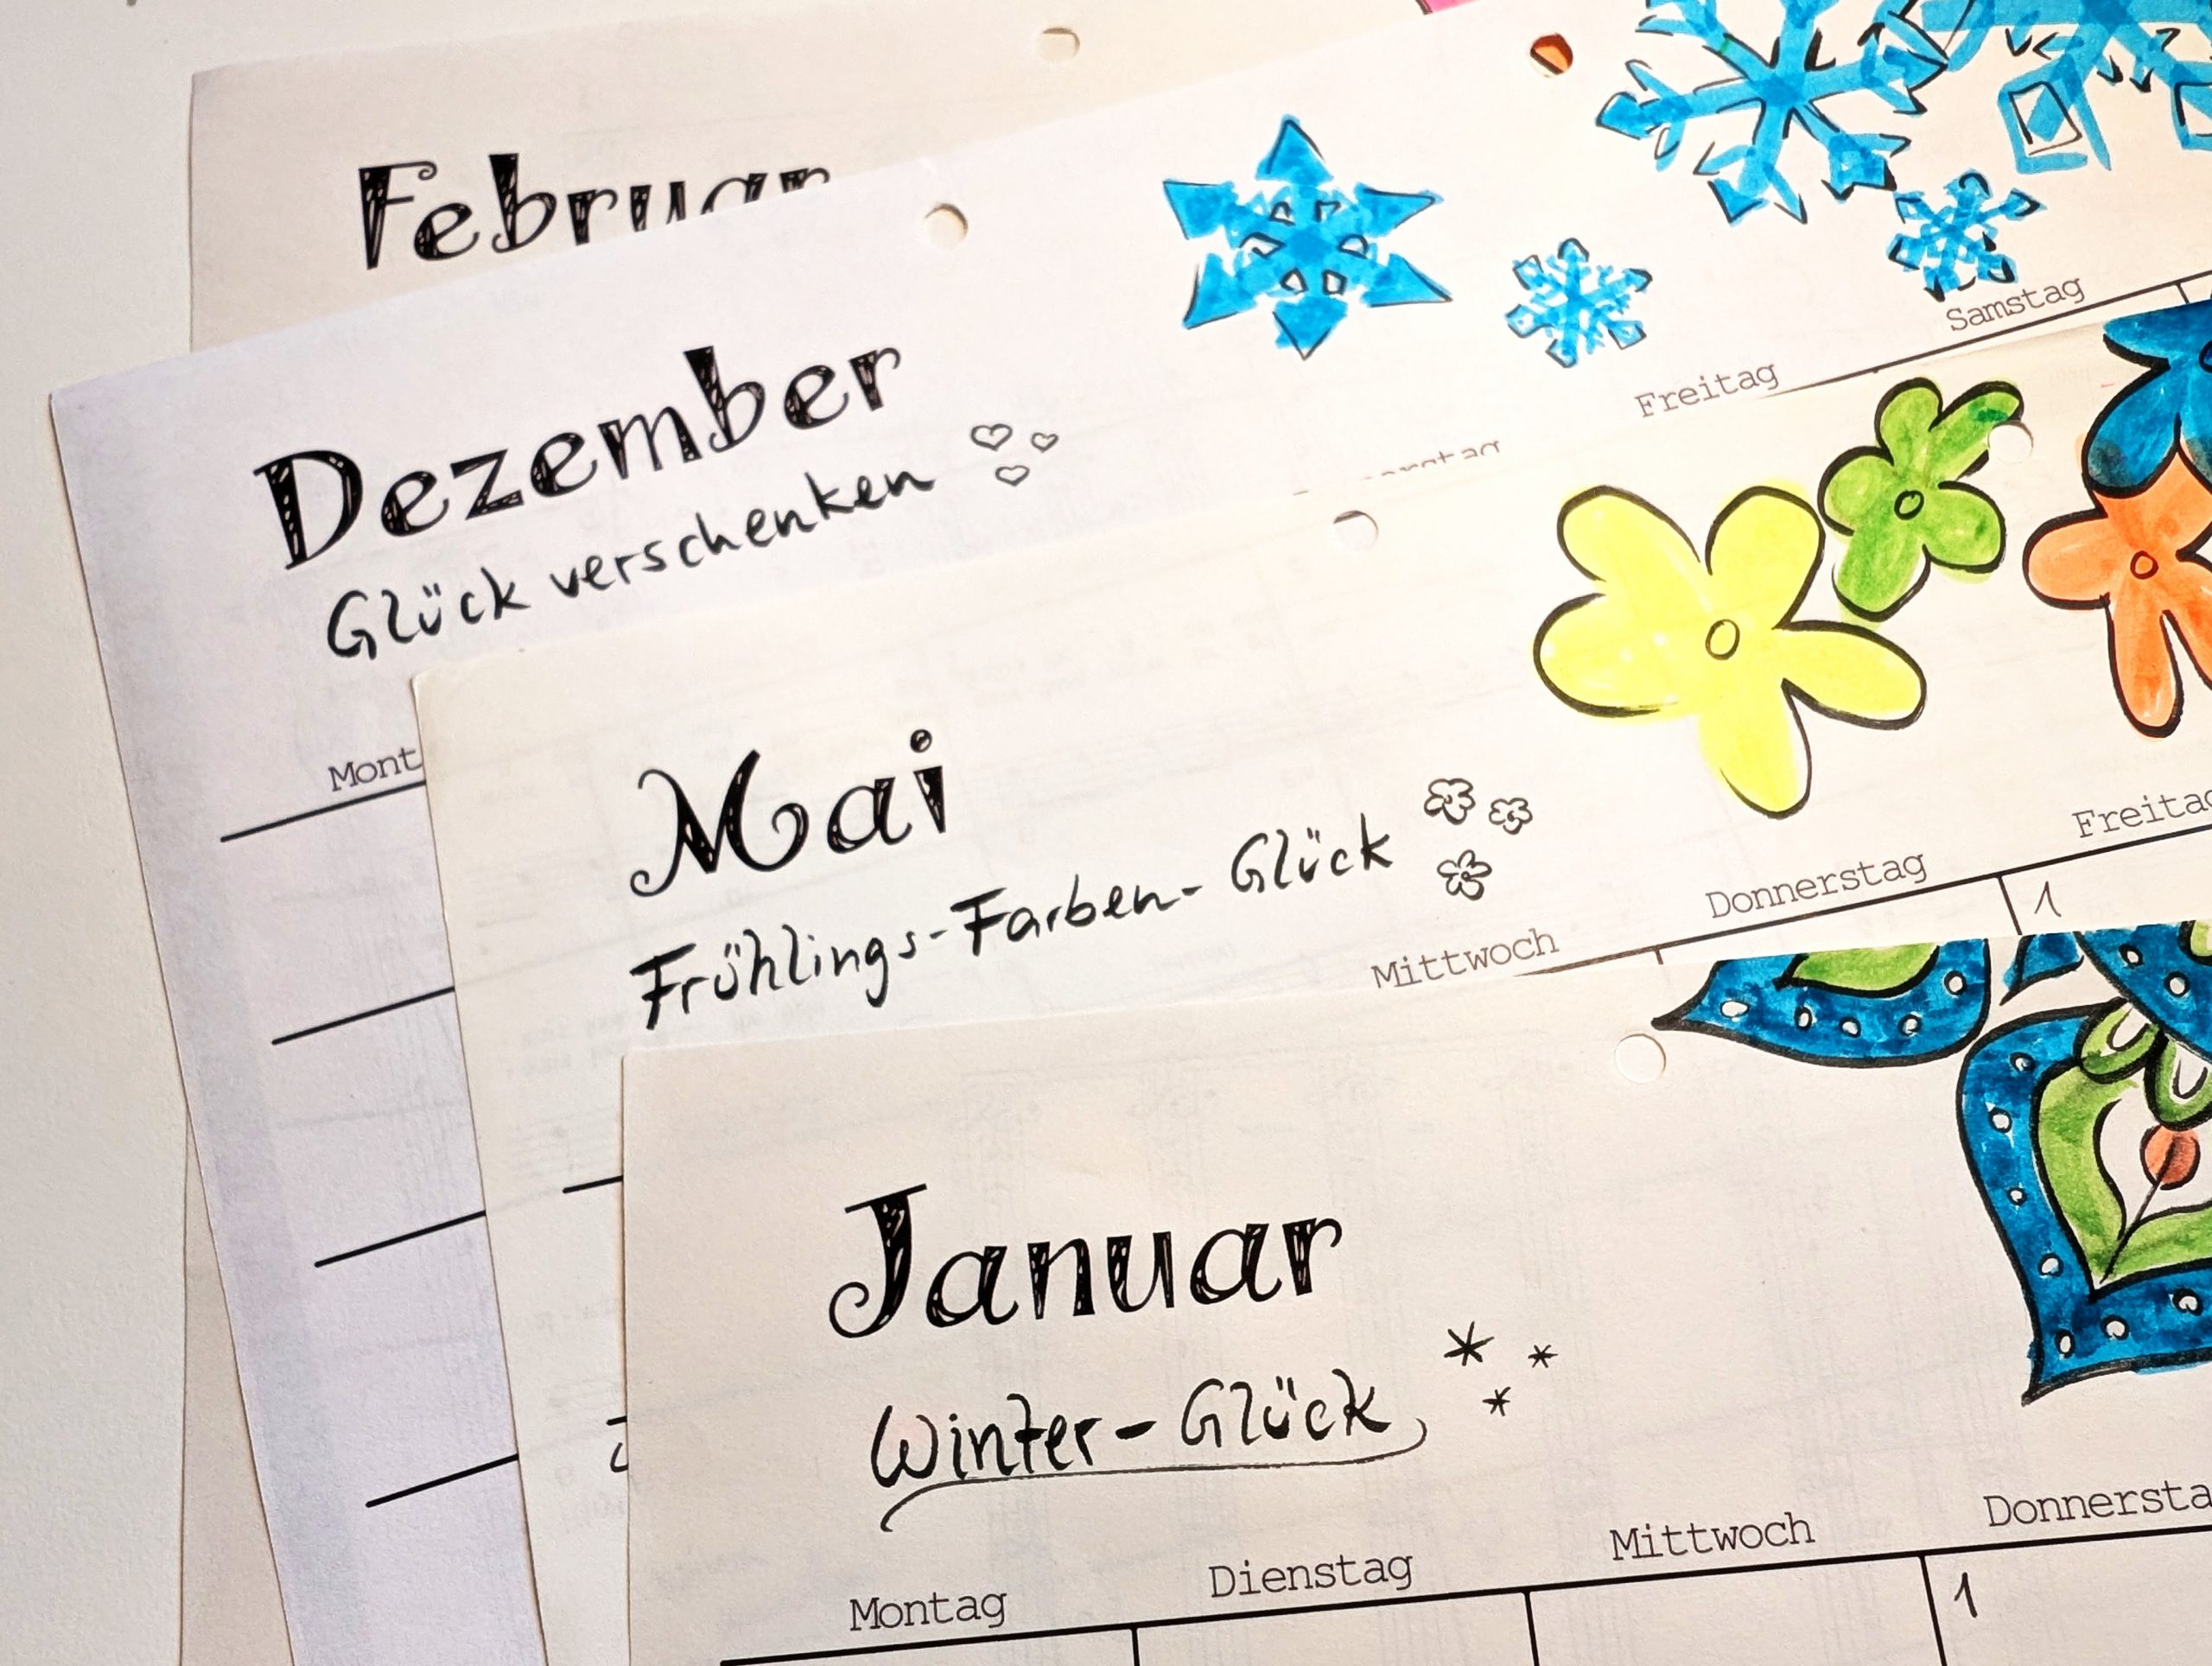 Februar
Dezember
Glück verschenken
Samstag
Freitag
Mai
Frühlings-Farben-Glück
Freitag
Donnerstag
Mittwoch
1
Januar
Winter-Glück
Montag Dienstag Mittwoch
1